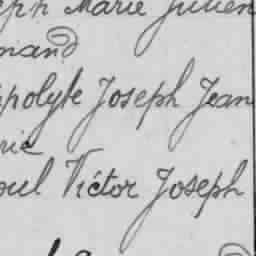 eph Marie Julien
mand
ppolyte Joseph Jean
rie
oul Victor Joseph